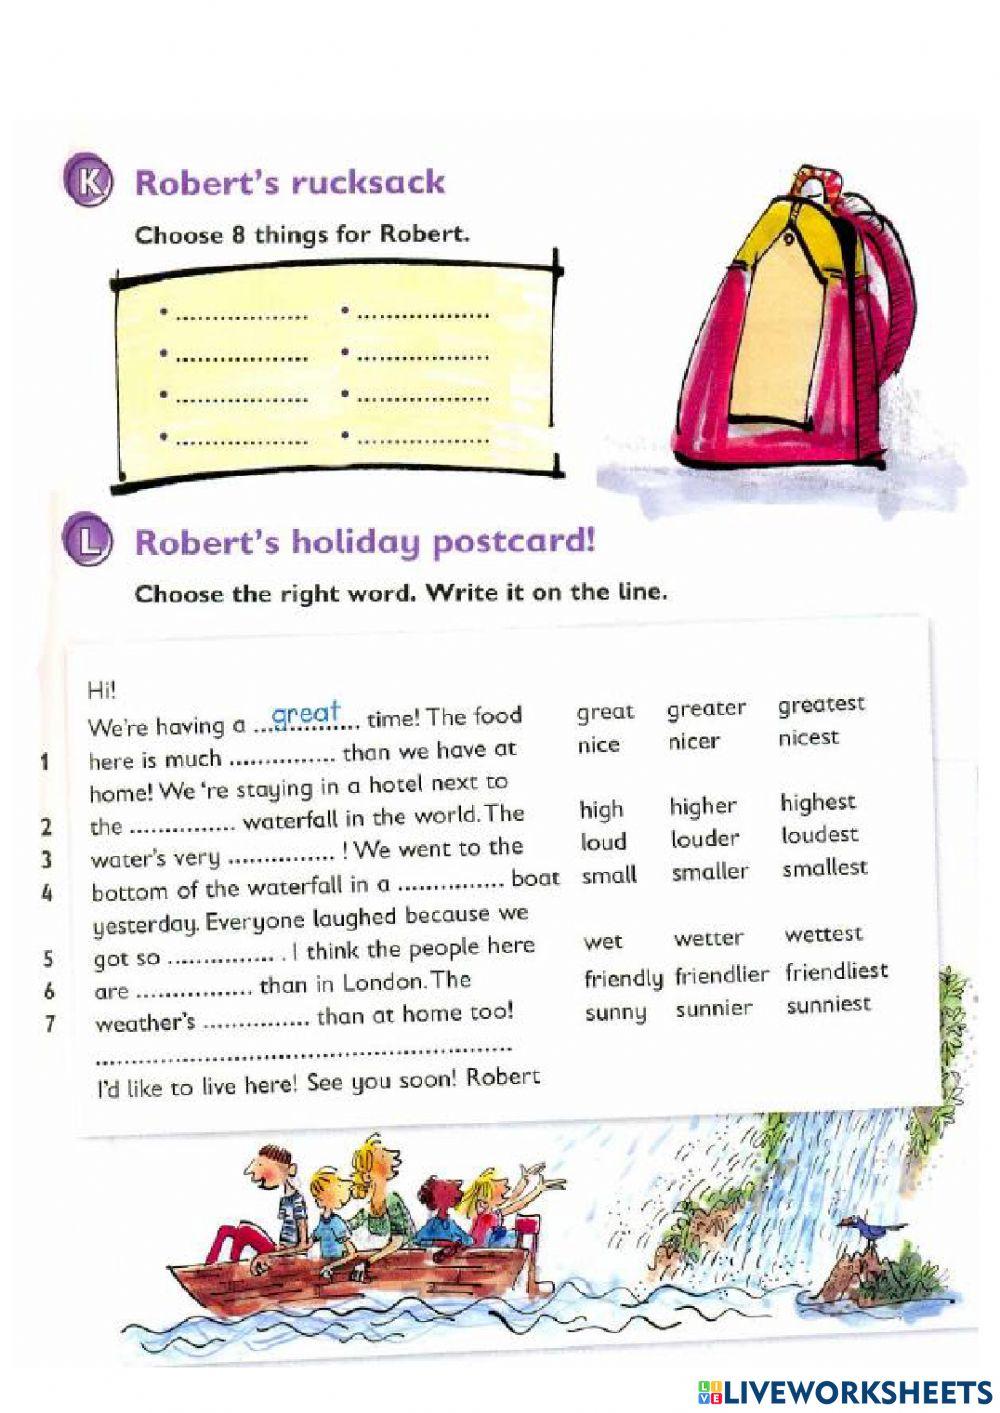 K Robert's rucksack
Choose 8 things for Robert.
• .................. • ..................
• .................. • ..................
• .................. • ..................
• .................. • ..................
L Robert's holiday postcard!
Choose the right word. Write it on the line.
Hi!
We're having a ...great... time! The food great greater greatest
1 here is much ............... than we have at nice nicer nicest
home! We 're staying in a hotel next to
2 the ............... waterfall in the world. The high higher highest
3 water's very ............... ! We went to the loud louder loudest
4 bottom of the waterfall in a ............... boat small smaller smallest
yesterday. Everyone laughed because we
5 got so ............... . I think the people here wet wetter wettest
6 are ............... than in London. The friendly friendlier friendliest
7 weather's ............... than at home too! sunny sunnier sunniest
............................................................
I'd like to live here! See you soon! Robert
LIVE LIVEWORKSHEETS